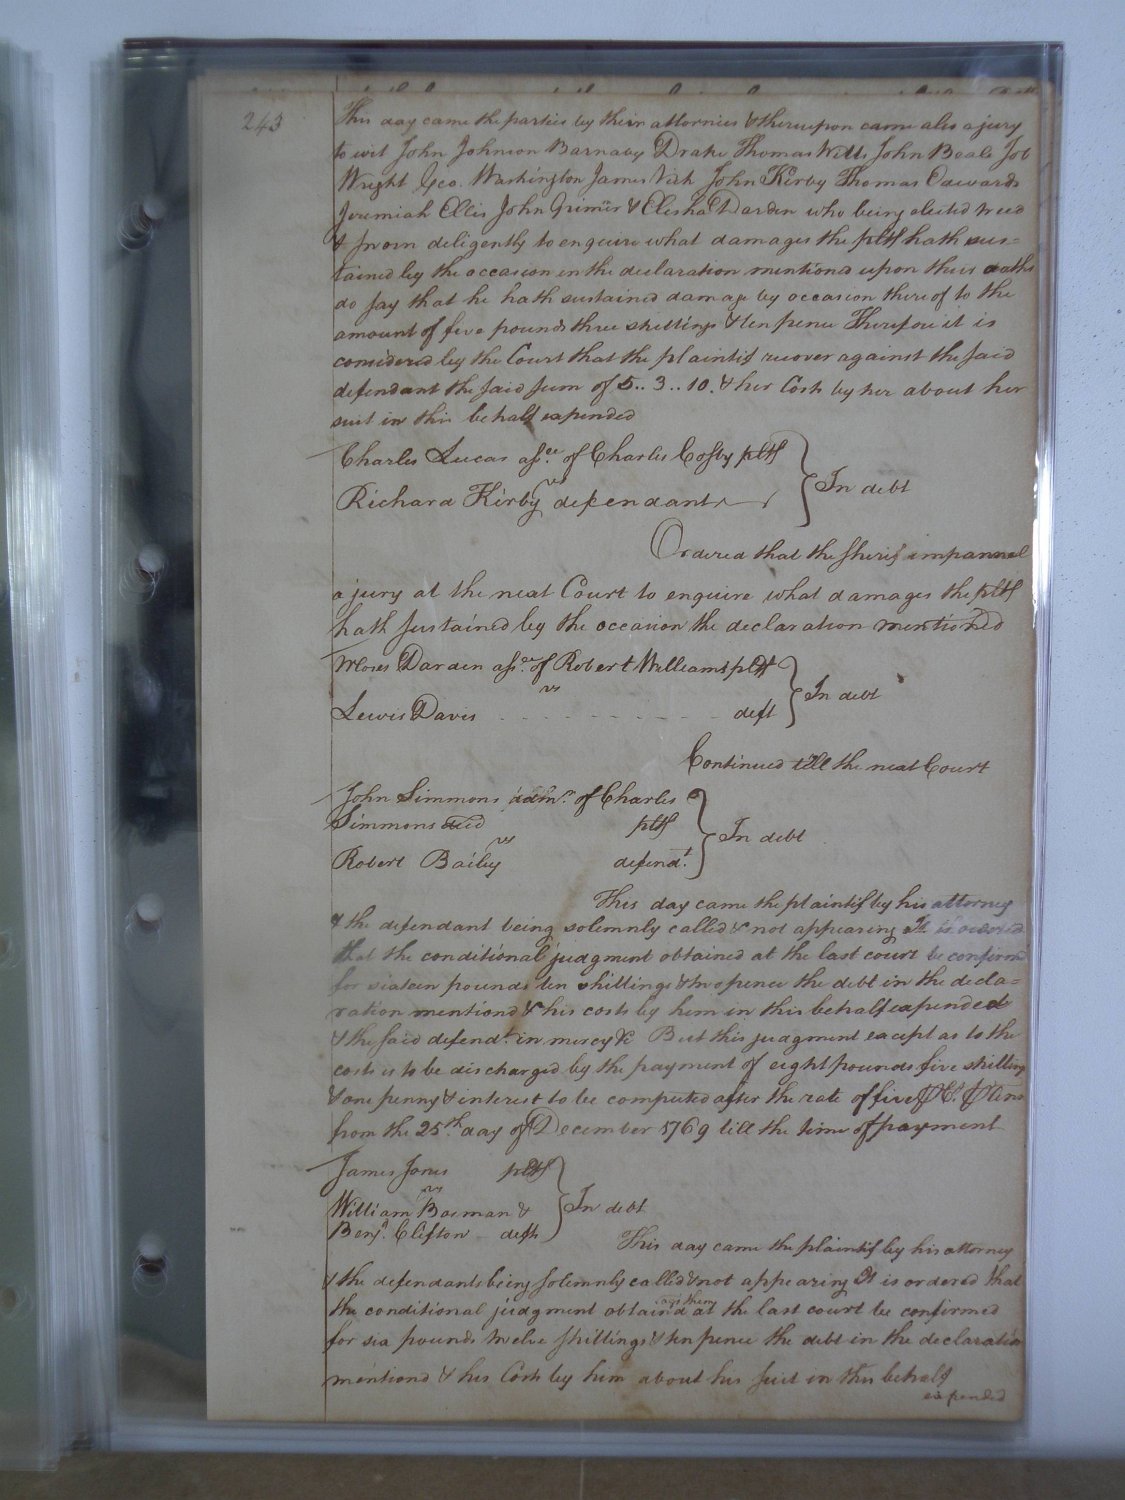 243
This day came the parties by their attornies & thereupon came also a jury
to wit John Johnson Barnaby Drake Thomas Wills John Beale Job
Wright Geo. Washington James Vick John Kirby Thomas Edwards
Jeremiah Ellis John Grimes & Elisha Darden who being elected tried
& sworn deligently to enquire what damages the pltf hath sus=
tained by the occasion in the declaration mentiond upon their oaths
do say that he hath sustained damage by occasion there of to the
amount of five pounds three shillings & ten pence Therefore it is
considered by the Court that the plaintif recover against the said
defendant the said sum of 5.. 3.. 10. & her Costs by her about her
suit in this behalf expended
Charles Lucas assee. of Charles Cosby pltf
vs
Richard Kirby defendant
In debt
Ordered that the sherif impannel
a jury at the next Court to enquire what damages the pltf
hath sustained by the occasion the declaration mentioned
Moses Darden assee. of Robert Williams pltf
vs
Lewis Davis - - - - - - - - - - deft
In debt
Continued till the next Court
John Simmons adm.r of Charles
Simmons decd pltf
vs
Robert Bailey defend.t
In debt
This day came the plaintif by his attorney
& the defendant being solemnly called & not appearing It is ordered
that the conditional judgment obtained at the last court be confirmd
for sixteen pounds ten shillings & two pence the debt in the decla=
ration mentiond & his costs by him in this behalf expended
& the said defend.t in mercy &c But this judgment except as to the
costs is to be discharged by the payment of eight pounds five shilling
& one penny & interest to be computed after the rate of five P Ct. P Ann
from the 25.th day of December 1769 till the time of payment
James Jones pltf
vs
William Bosman &
Benj.a Clifton defts
In debt
This day came the plaintif by his attorney
& the defendants being solemnly called & not appearing It is ordered that
agt them
the conditional judgment obtain'd at the last court be confirmed
for six pounds twelve shillings & ten pence the debt in the declaration
mentiond & his Costs by him about his suit in this behalf
expended